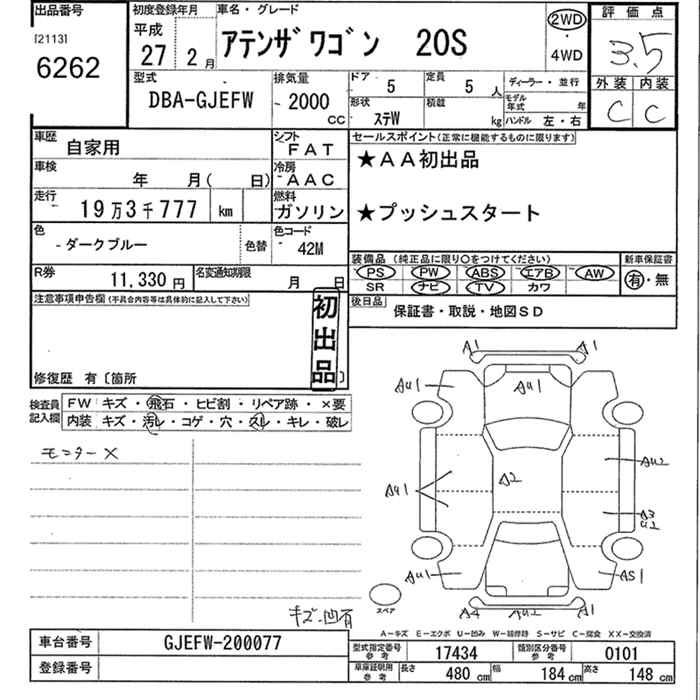 出品番号
[2113]
6262
初度登録年月
平成
27 2月
車名・グレード
アテンザワゴン 20S
2WD
・
4WD
評価点
3.5
外装 内装
C C
型式
DBA-GJEFW
排気量
2000
CC
ドア 5
定員 5 人
形状 ステW
積載 kg
ディーラー・並行
モデル年式 年
ハンドル 左・右
車歴 自家用
シフト FAT
車検 年 月( 日)
冷房 AAC
走行 19万3千777 km
燃料 ガソリン
色 -ダークブルー
色替
色コード 42M
R券 11,330円
名変通知期限 月 日
セールスポイント(正常に機能するものに限ります)
★AA初出品
★プッシュスタート
装備品(純正品に限り○をつけてください)
PS PW ABS エアB AW
SR ナビ TV カワ
新車保証書
有・無
後日品 保証書・取説・地図SD
注意事項申告欄(不具合内容等は具体的に記入して下さい)
初出品
修復歴 有〔箇所 〕
検査員記入欄
FW キズ・飛石・ヒビ割・リペア跡・×要
内装 キズ・汚レ・コゲ・穴・スレ・キレ・破レ
モニターX
キズ、凹有
A1 A1
AU1 AU1 AU1
A2
AW2
AU1
A3
U2
AU1 AS1
A4 AU2 A1
スペア
A-キズ E-エクボ U-凹み W-補修跡 S-サビ C-腐食 XX-交換済
車台番号 GJEFW-200077
登録番号
型式指定番号 参考 17434
類別区分番号 参考 0101
車庫証明用 参考 長さ 480 cm 幅 184 cm 高さ 148 cm